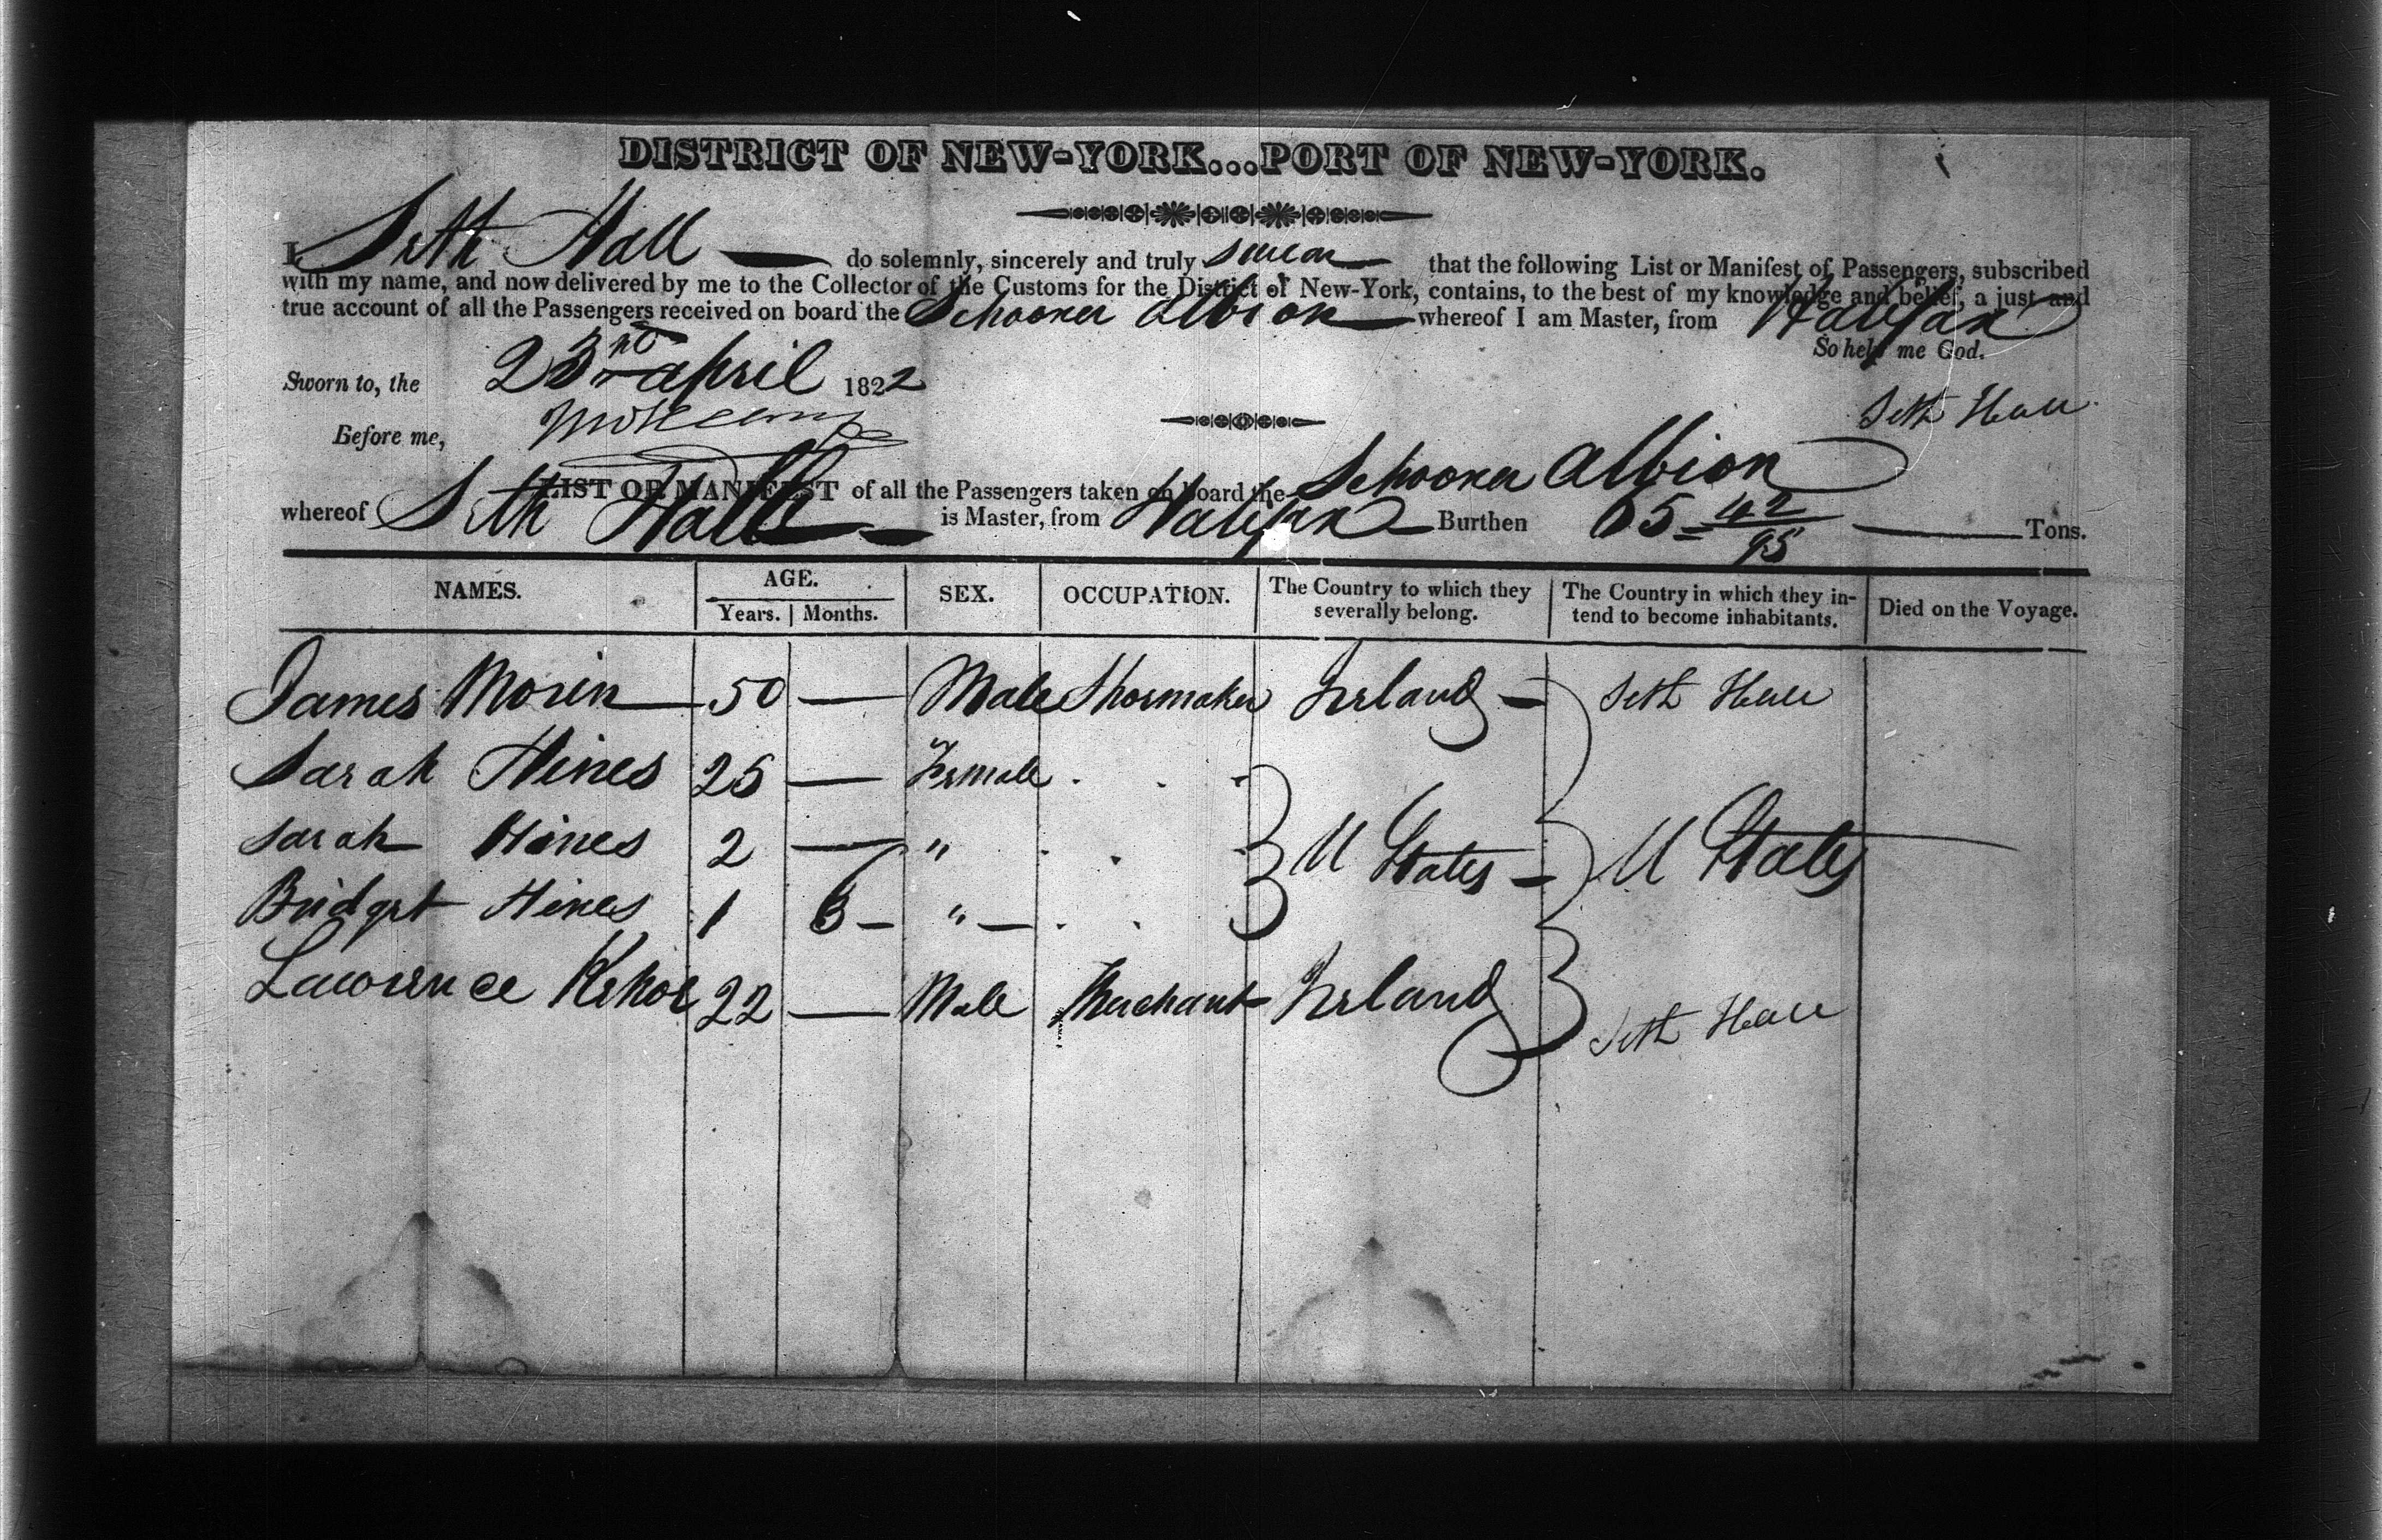 DISTRICT OF NEW-YORK...PORT OF NEW-YORK.
I Seth Hall do solemnly, sincerely and truly swear that the following List or Manifest of Passengers, subscribed
with my name, and now delivered by me to the Collector of the Customs for the District of New-York, contains, to the best of my knowledge and belief, a just and
true account of all the Passengers received on board the Schooner Albion whereof I am Master, from Halifax
So help me God.
Sworn to, the 23rd april 1822
Seth Hall
Before me,
LIST OR MANIFEST of all the Passengers taken on board the Schooner Albion
whereof Seth Hall is Master, from Halifax Burthen 65 42/95 Tons.
NAMES. AGE. SEX. OCCUPATION. The Country to which they severally belong. The Country in which they in-tend to become inhabitants. Died on the Voyage.
Years. Months.
James Morin 50 — Male Shoemaker Ireland — Seth Hall
Sarah Hines 25 — Female
Sarah Hines 2 — " U States — U States
Bridget Hines 1 6 — " —
Lawrence Kehoe 22 — Male Merchant Ireland
Seth Hall